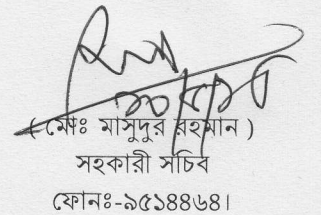 ১০/৮/১৬
( মোঃ মাসুদুর রহমান )
সহকারী সচিব
ফোনঃ-৯৫১৪৪৬৪।